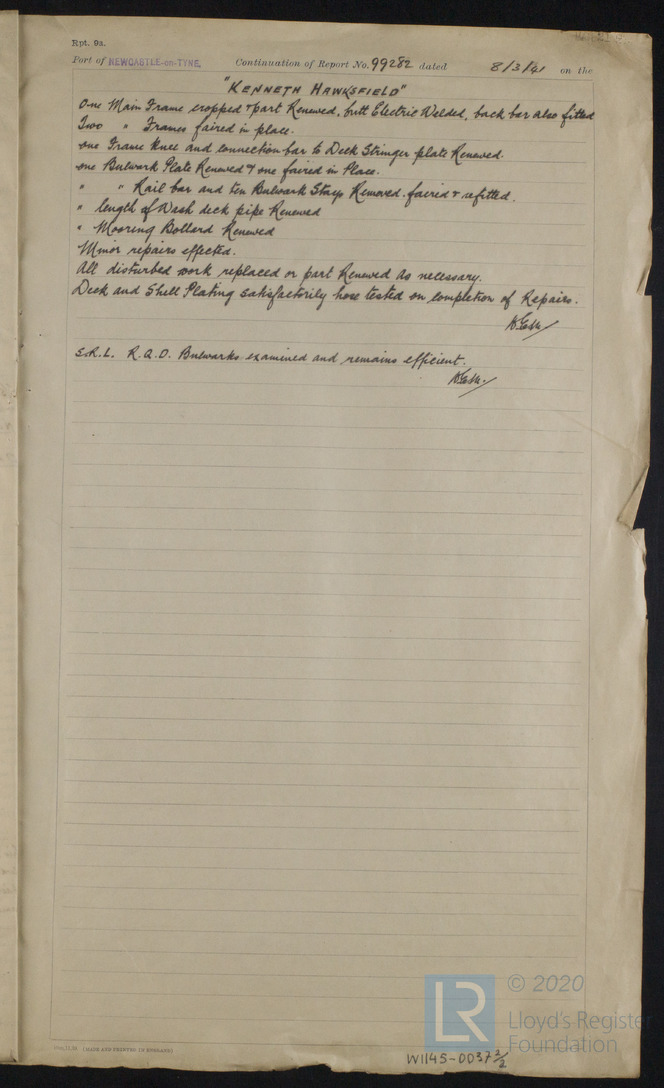 Rpt. 9a.
Port of NEWCASTLE-on-TYNE. Continuation of Report No. 99282 dated 8/3/41 on the
"KENNETH HAWKSFIELD"
One Main Frame cropped & part Renewed, butt Electric Welded, back bar also fitted
Two " Frames faired in place.
one Frame knee and connection bar to Deck Stringer plate Renewed.
one Bulwark Plate Renewed & one faired in Place.
" " Rail bar and ten Bulwark Stays Removed. faired & refitted.
" length of Wash deck pipe Renewed
" Mooring Bollard Renewed
Minor repairs effected.
All disturbed work replaced or part Renewed as necessary.
Deck and Shell Plating satisfactorily hose tested on completion of Repairs.
S.R.L. R.Q.D. Bulwarks examined and remains efficient.
(MADE AND PRINTED IN ENGLAND)
W1145-0037 2/2
LR
© 2020
Lloyd's Register
Foundation